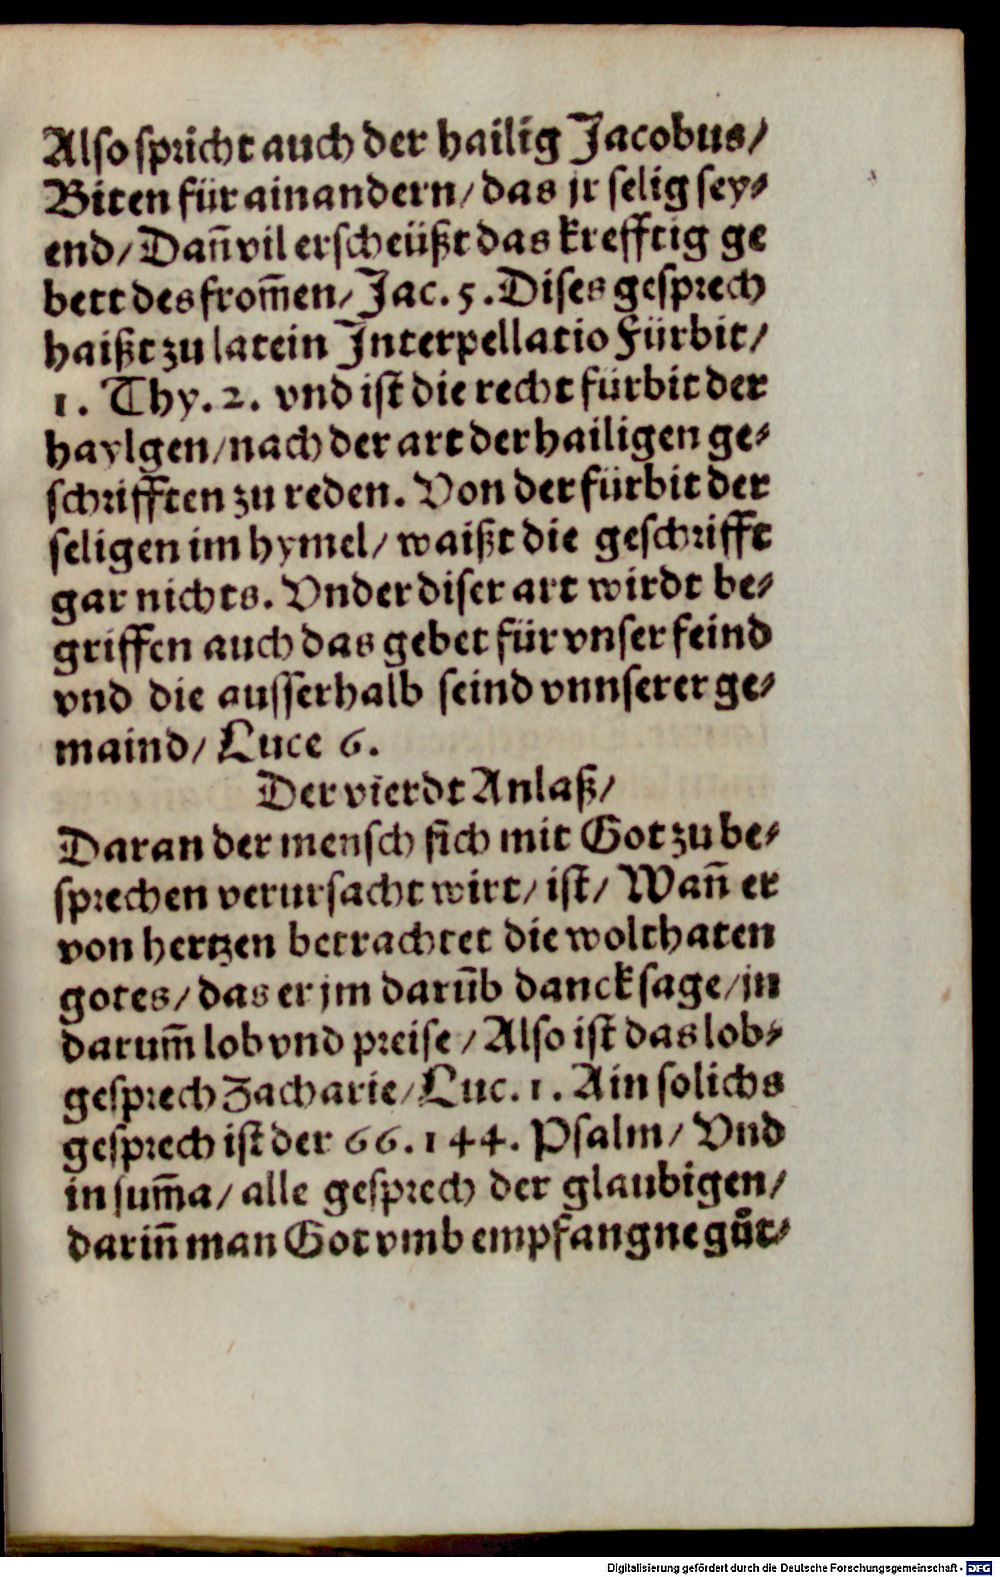 Also spricht auch der hailig Jacobus/
Biten für ainandern/ das jr selig sey⸗
end/ Dañ vil erscheüßt das krefftig ge
bett des from̃en/ Jac. 5. Dises gesprech
haißt zu latein Interpellatio Fürbit/
1. Thy. 2. vnd ist die recht fürbit der
haylgen/ nach der art der hailigen ge⸗
schrifften zu reden. Von der fürbit der
seligen im hymel/ waißt die geschrifft
gar nichts. Vnder diser art wirdt be⸗
griffen auch das gebet für vnser feind
vnd die ausserhalb seind vnnserer ge⸗
maind/ Luce 6.
Der vierdt Anlaß/
Daran der mensch sich mit Got zu be⸗
sprechen verursacht wirt/ ist/ Wañ er
von hertzen betrachtet die wolthaten
gotes/ das er jm darũb danck sage/ jn
darum̃ lob vnd preise/ Also ist das lob⸗
gesprech Zacharie/ Luc. 1. Ain solichs
gesprech ist der 66. 144. Psalm/ Vnd
in sum̃a/ alle gesprech der glaubigen/
dariñ man Got vmb empfangne guͤt⸗
Digitalisierung gefördert durch die Deutsche Forschungsgemeinschaft - DFG